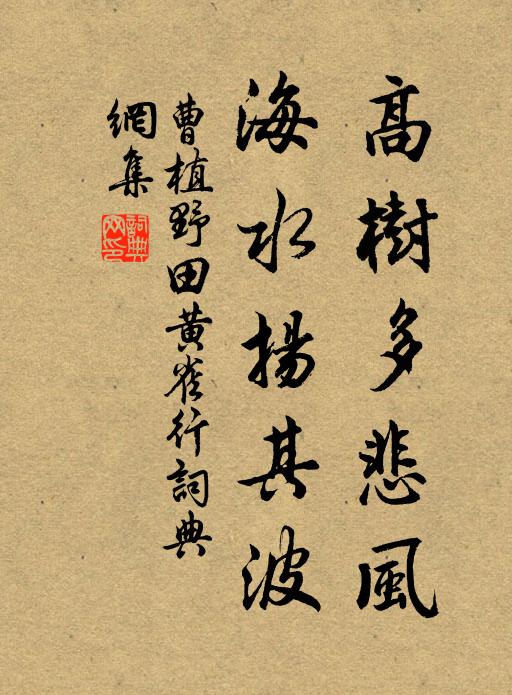 高樹多悲風
海水揚其波
曹植野田黃雀行詞典
網集
詞典網印